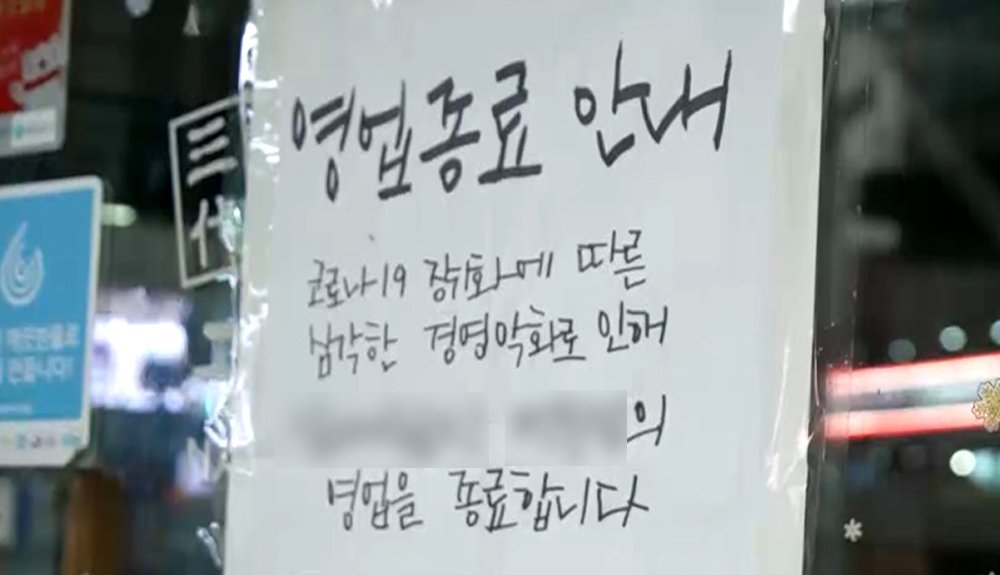 영업종료 안내
코로나19 장기화에 따른
심각한 경영악화로 인해
의
영업을 종료합니다
三
代